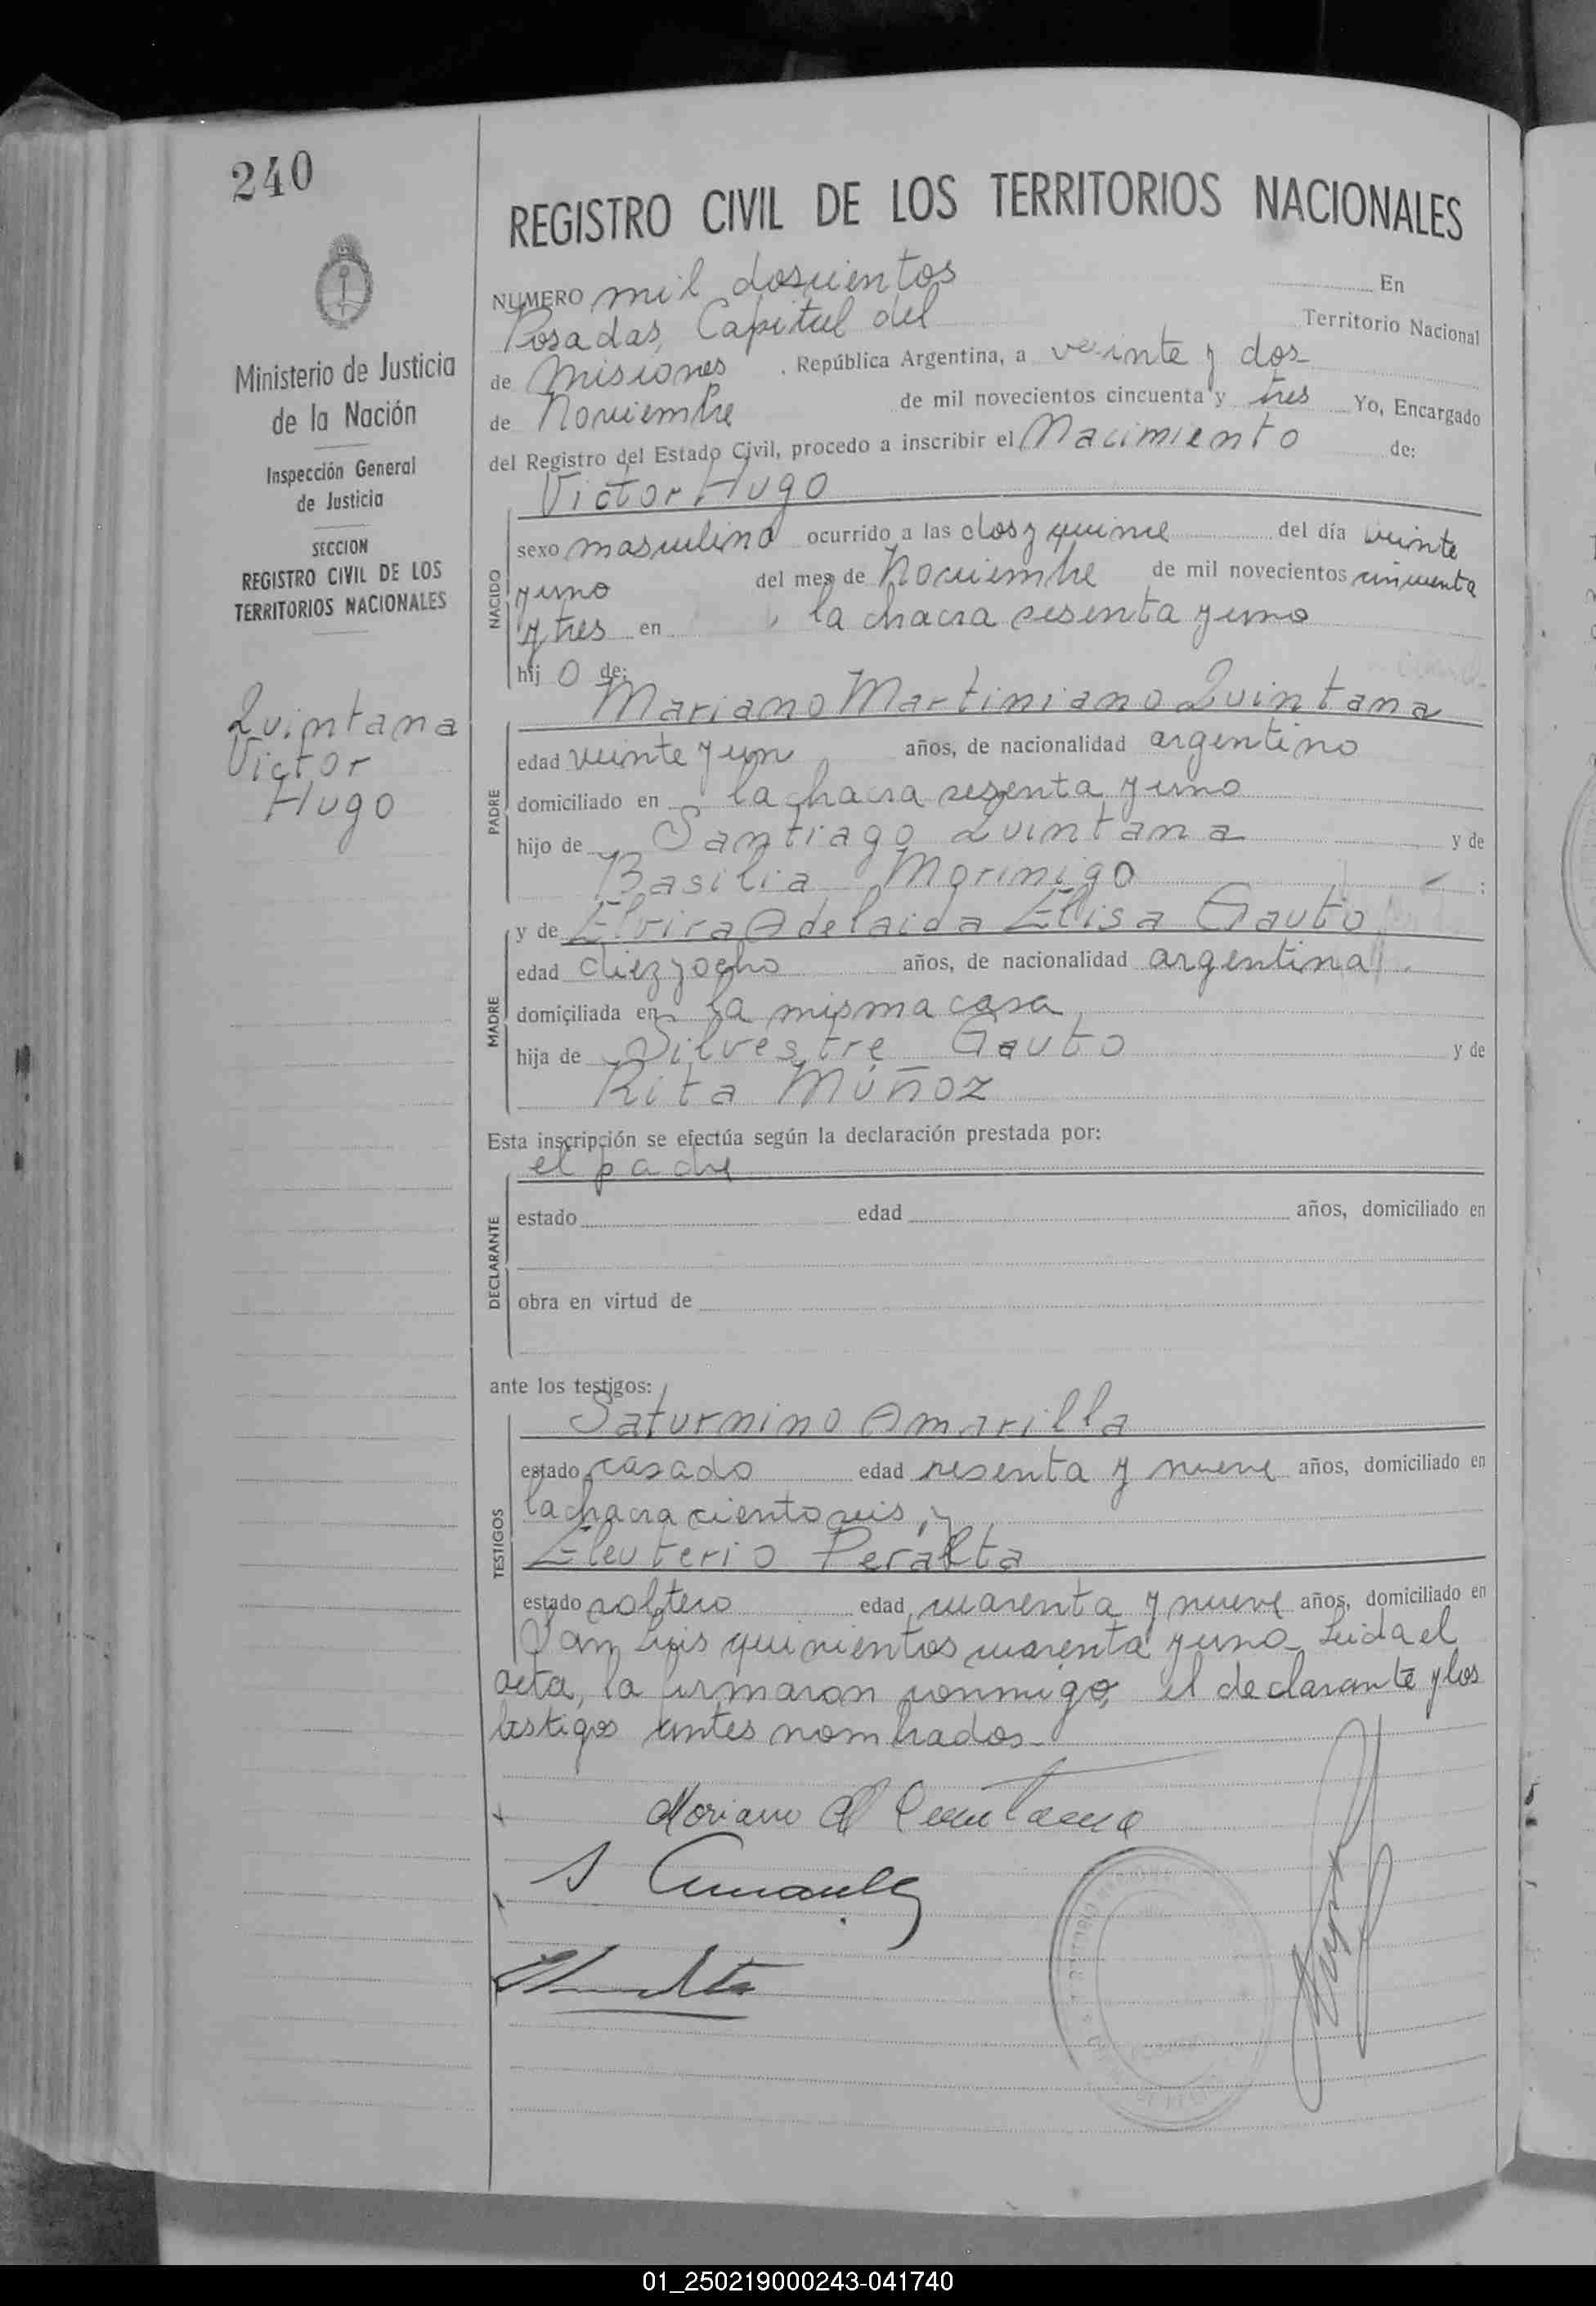 240
REGISTRO CIVIL DE LOS TERRITORIOS NACIONALES
Ministerio de Justicia
de la Nación
Inspección General
de Justicia
SECCION
REGISTRO CIVIL DE LOS
TERRITORIOS NACIONALES
Quintana
Victor
Hugo
NUMERO mil doscientos En
Posadas, Capital del Territorio Nacional
de Misiones, República Argentina, a veinte y dos
de Noviembre de mil novecientos cincuenta y tres Yo, Encargado
del Registro del Estado Civil, procedo a inscribir el Nacimiento de:
Victor Hugo
NACIDO
sexo masculino ocurrido a las dos y quince del día veinte
y uno del mes de Noviembre de mil novecientos cincuenta
y tres en la chacra sesenta y uno
hij o de:
Mariano Martiniano Quintana
PADRE
edad veinte y un años, de nacionalidad argentino
domiciliado en la chacra sesenta y uno
hijo de Santiago Quintana y de
Basilia Morinigo :
y de Elvira Adelaida Elisa Gauto
MADRE
edad diez y ocho años, de nacionalidad argentina
domiciliada en la misma casa
hija de Silvestre Gauto y de
Rita Múñoz
Esta inscripción se efectúa según la declaración prestada por:
el padre
DECLARANTE
estado edad años, domiciliado en
obra en virtud de
ante los testigos:
Saturnino Amarilla
TESTIGOS
estado casado edad sesenta y nueve años, domiciliado en
la chacra ciento seis, y
Eleuterio Peralta
estado soltero edad cuarenta y nueve años, domiciliado en
San Luis quinientos cuarenta y uno- Leida el
acta, la firmaron conmigo, el declarante y los
testigos antes nombrados-
Mariano M Quintana
S Amarilla
01_250219000243-041740